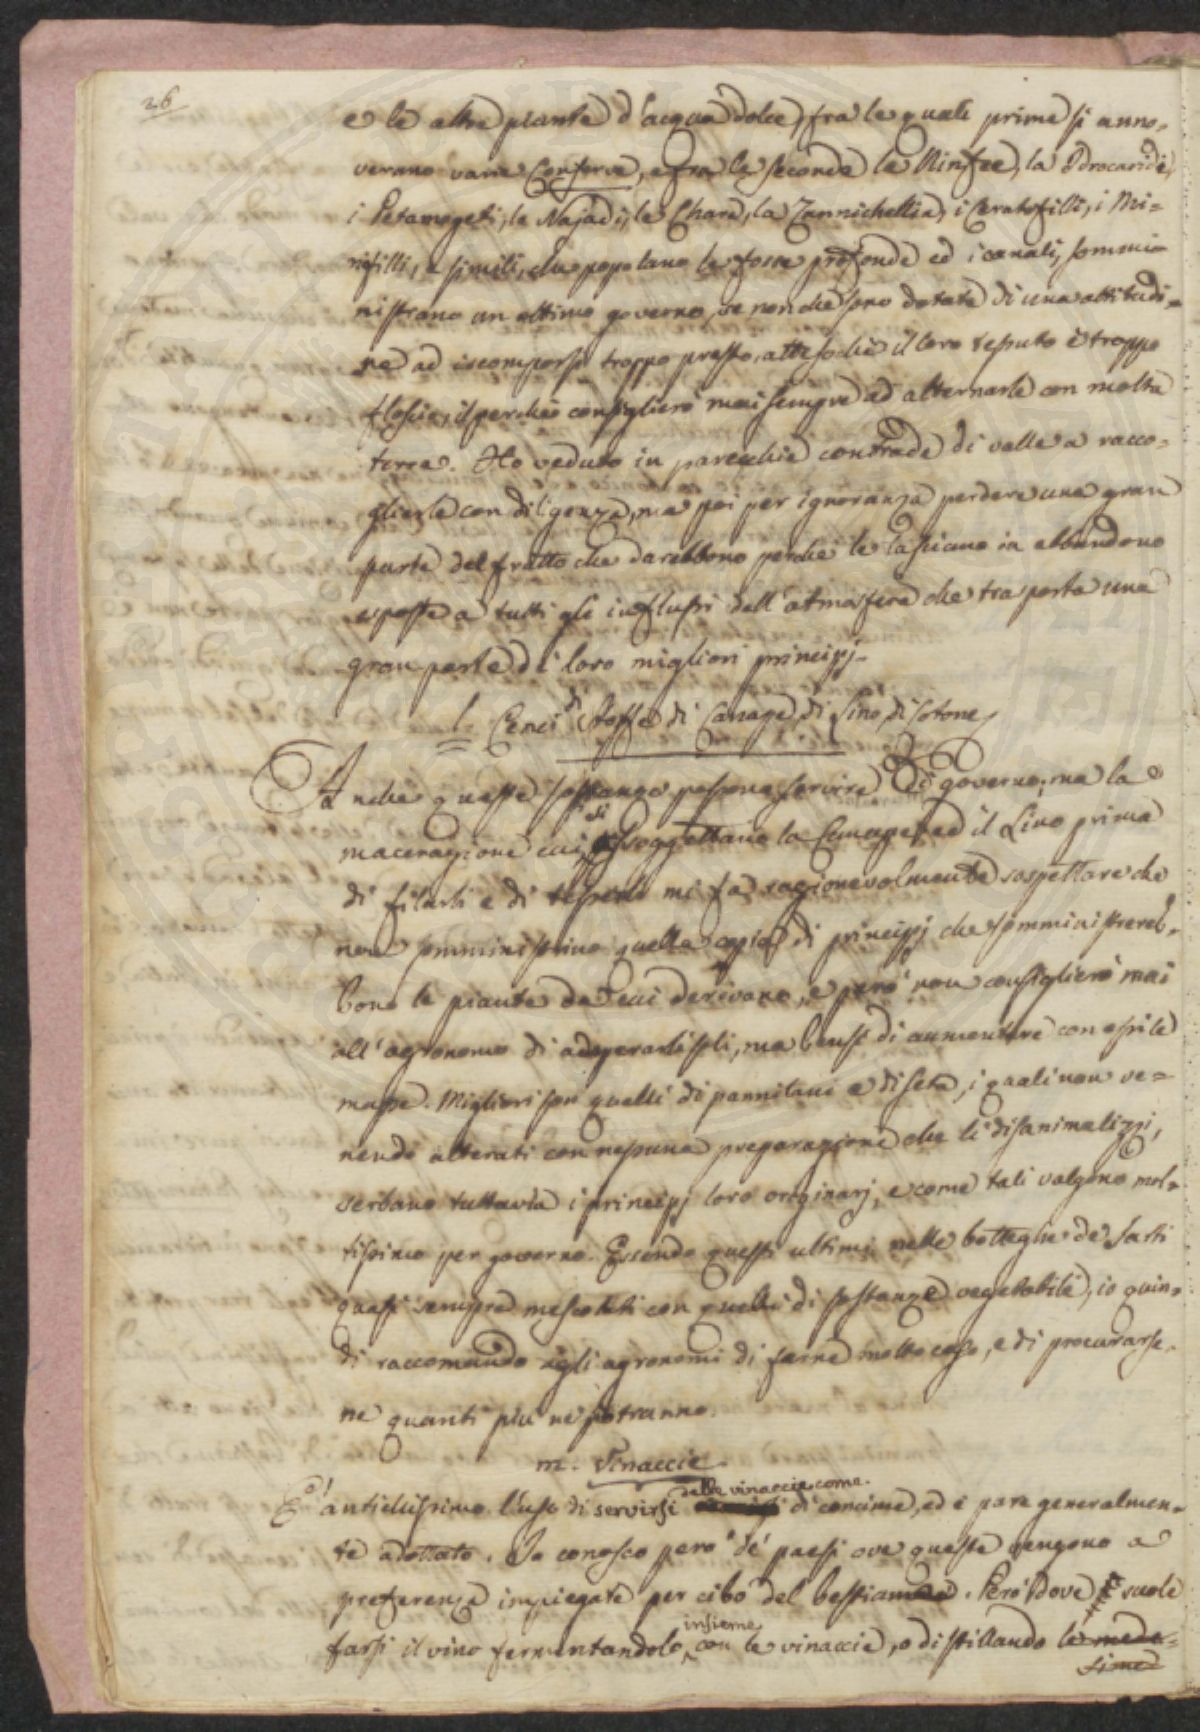 26
e le altre piante d'acqua dolce, fra le quali prime si anno-
verano varie Conferve, e fra le seconde le Ninfee, la Idrocaride,
i Potamogeti, le Najadi, le Chare, la Zannichellia, i Ceratofilli, i Mi-
riofilli, e simili, che popolano le fosse profonde ed i canali, sommi-
nistrano un ottimo governo, se non che sono dotate di una attitudi-
ne ad iscomporsi troppo presto, attesochè il loro tessuto è troppo
floscio, il perchè consiglierò mai sempre ad alternarle con molta
terra. Ho veduto in parecchie contrade di valle a racco-
glierle con diligenza, ma poi per ignoranza perdere una gran
parte del frutto che darebbono perchè le lasciano in abbandono
esposte a tutti gli influssi dell'atmosfera che trasporta una
gran parte dei loro migliori principj.
l. Cenci di Stoffe di Canape, di Lino, di Cotone,
Anche queste sostanze possono servire di governo; ma la
macerazione cui si assoggettano la Canape ed il Lino prima
di filarli e di tesserli mi fa ragionevolmente sospettare che
non somministrino quella copia di principj che somministrereb-
bono le piante da cui derivano, e però non consiglierò mai
all'agronomo di adoperarli soli, ma bensì di aumentare con essi le
masse. Migliori son quelli di pannilani e di seta, i quali non ve-
nendo alterati con nessuna preparazione che li disanimalizzi,
serbano tuttavia i principj loro originarj, e come tali valgono mol-
tissimo per governo. Essendo questi ultimi nelle botteghe de' sarti
quasi sempre mescolati con quelli di sostanze vegetabile, io quin-
di raccomando agli agronomi di farne molto caso, e di procurarse-
ne quanti più ne potranno.
m. Vinaccie
delle vinaccie come
E' antichissimo l'uso di servirsi di concime, ed è pare generalmen-
te adottato. Io conosco però de' paesi ove queste vengono a
preferenza impiegate per cibo del bestiame. Però dove suole
insieme
farsi il vino fermentandolo, con le vinaccie, o distillando le mede-
sime